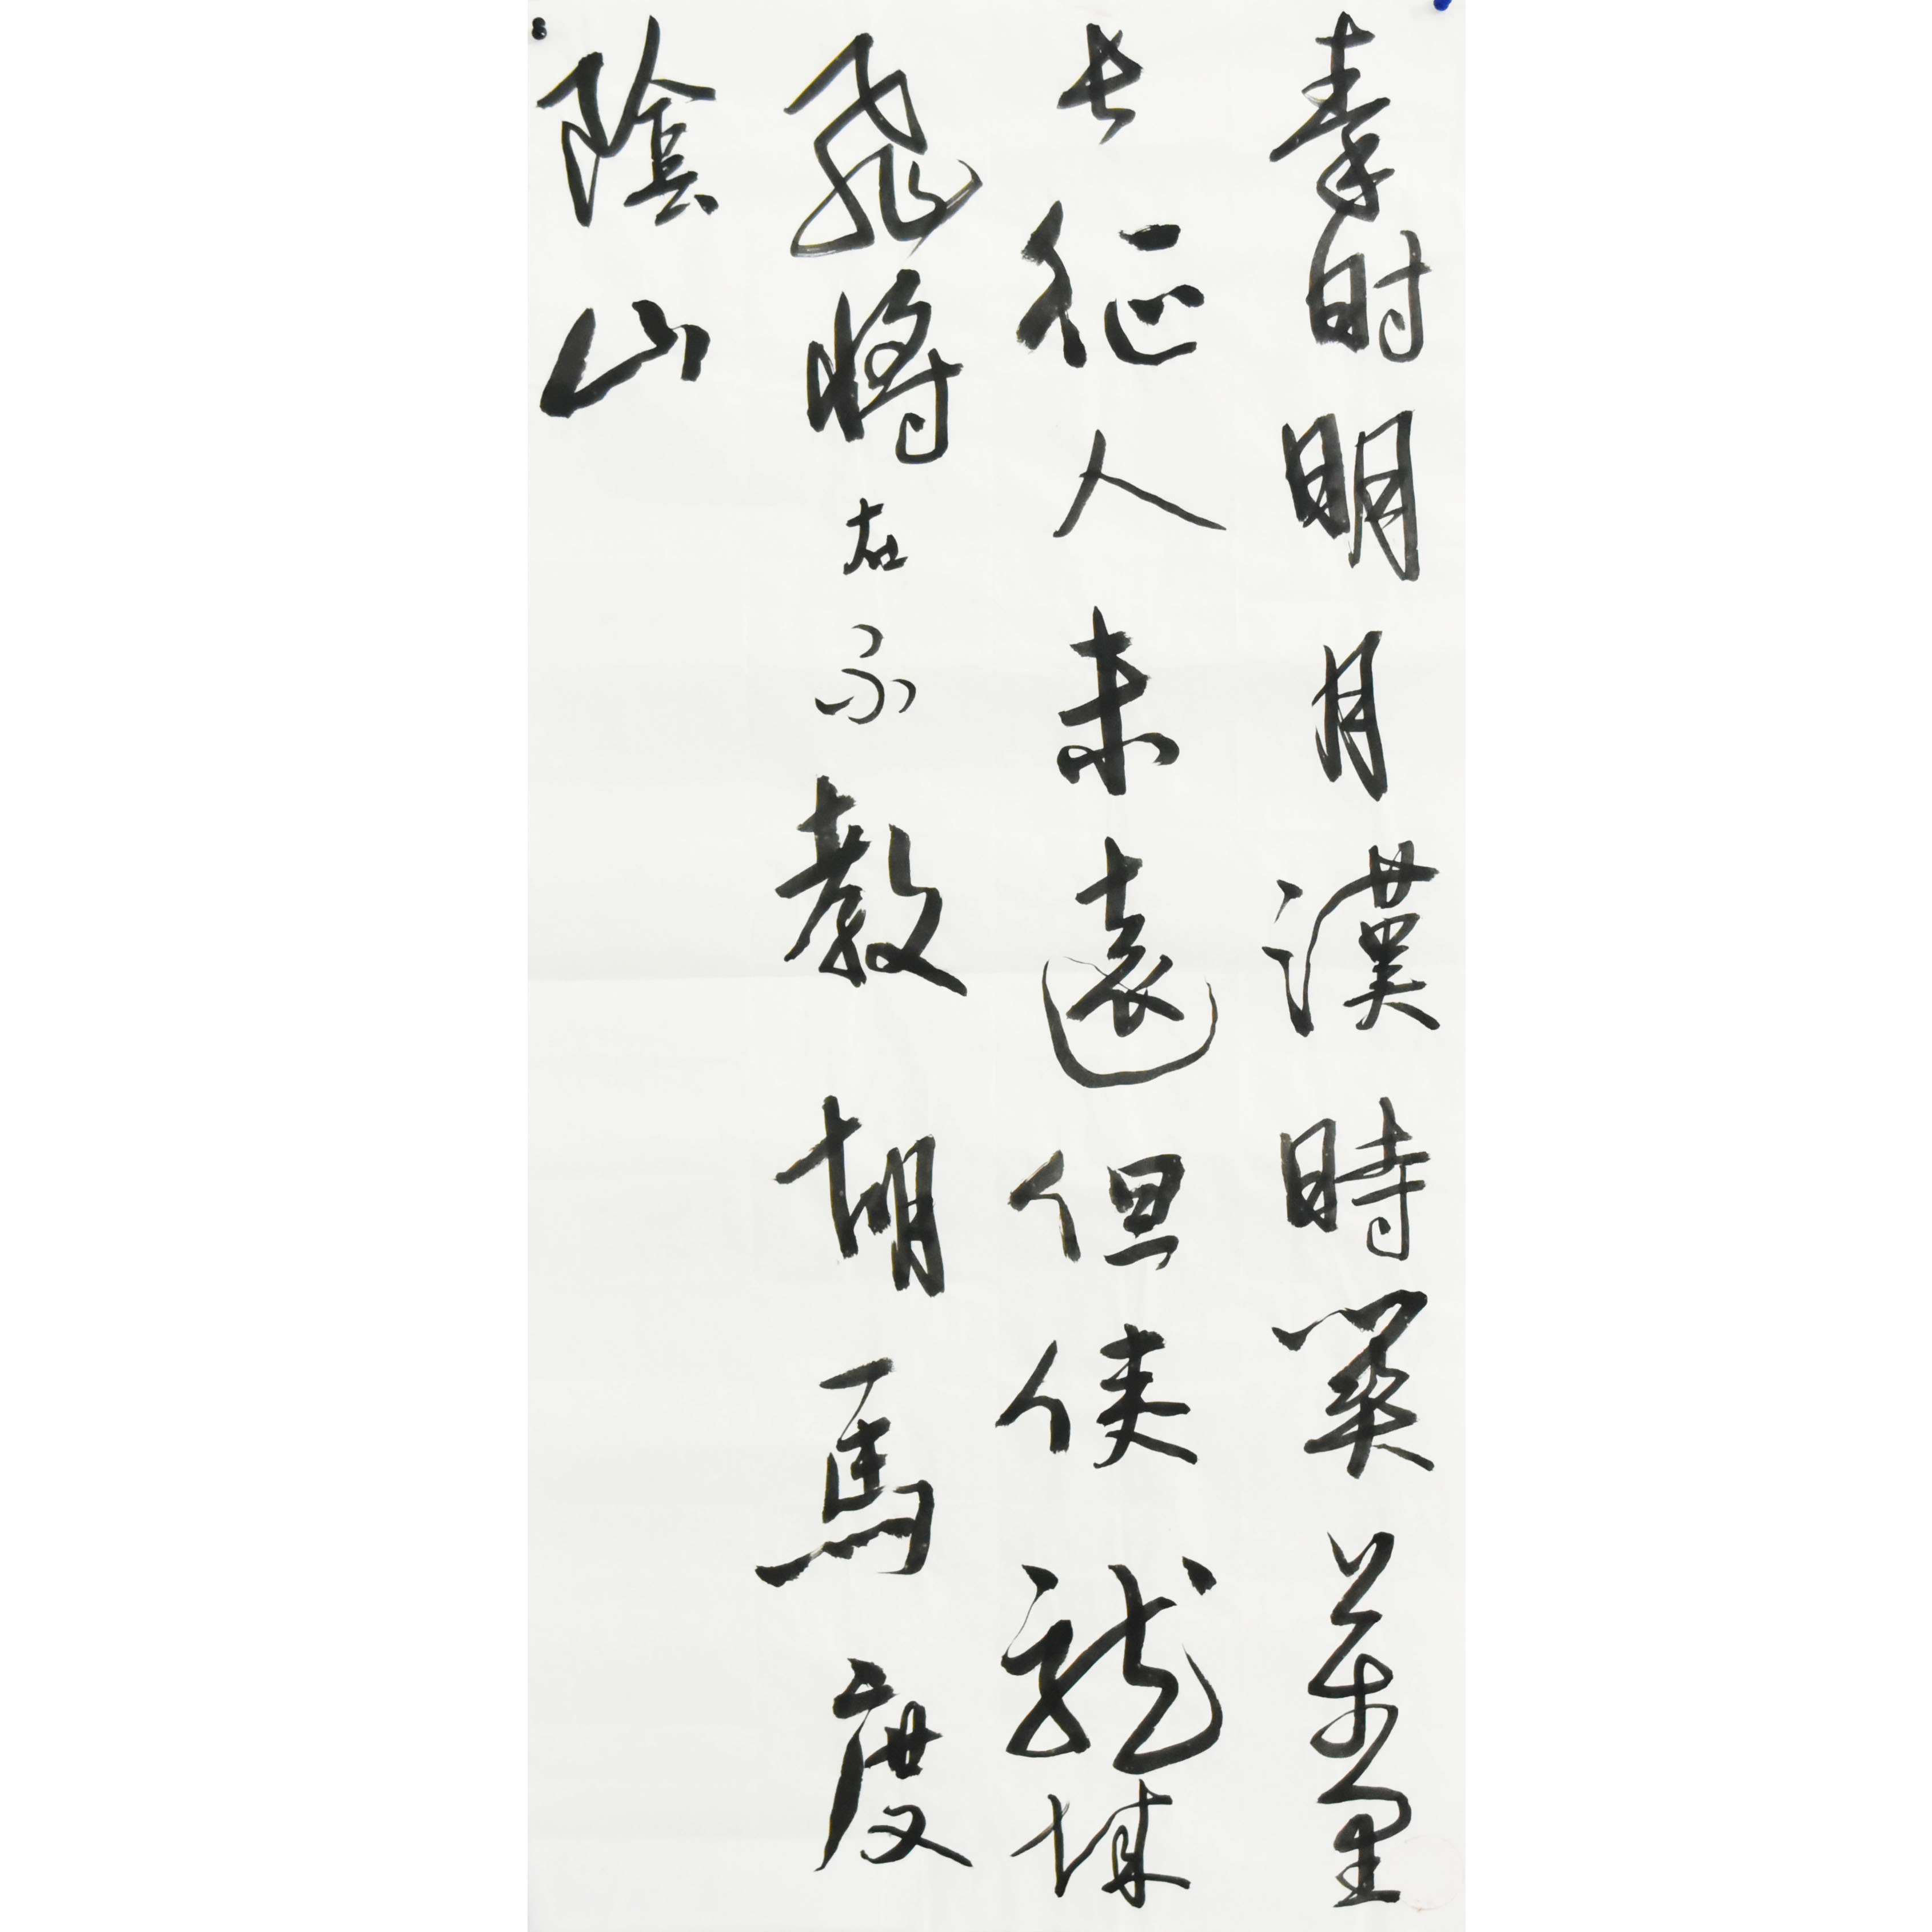 秦时明月漢時關萬里
長征人未還但使龍城
飛將在不教胡馬度
陰山